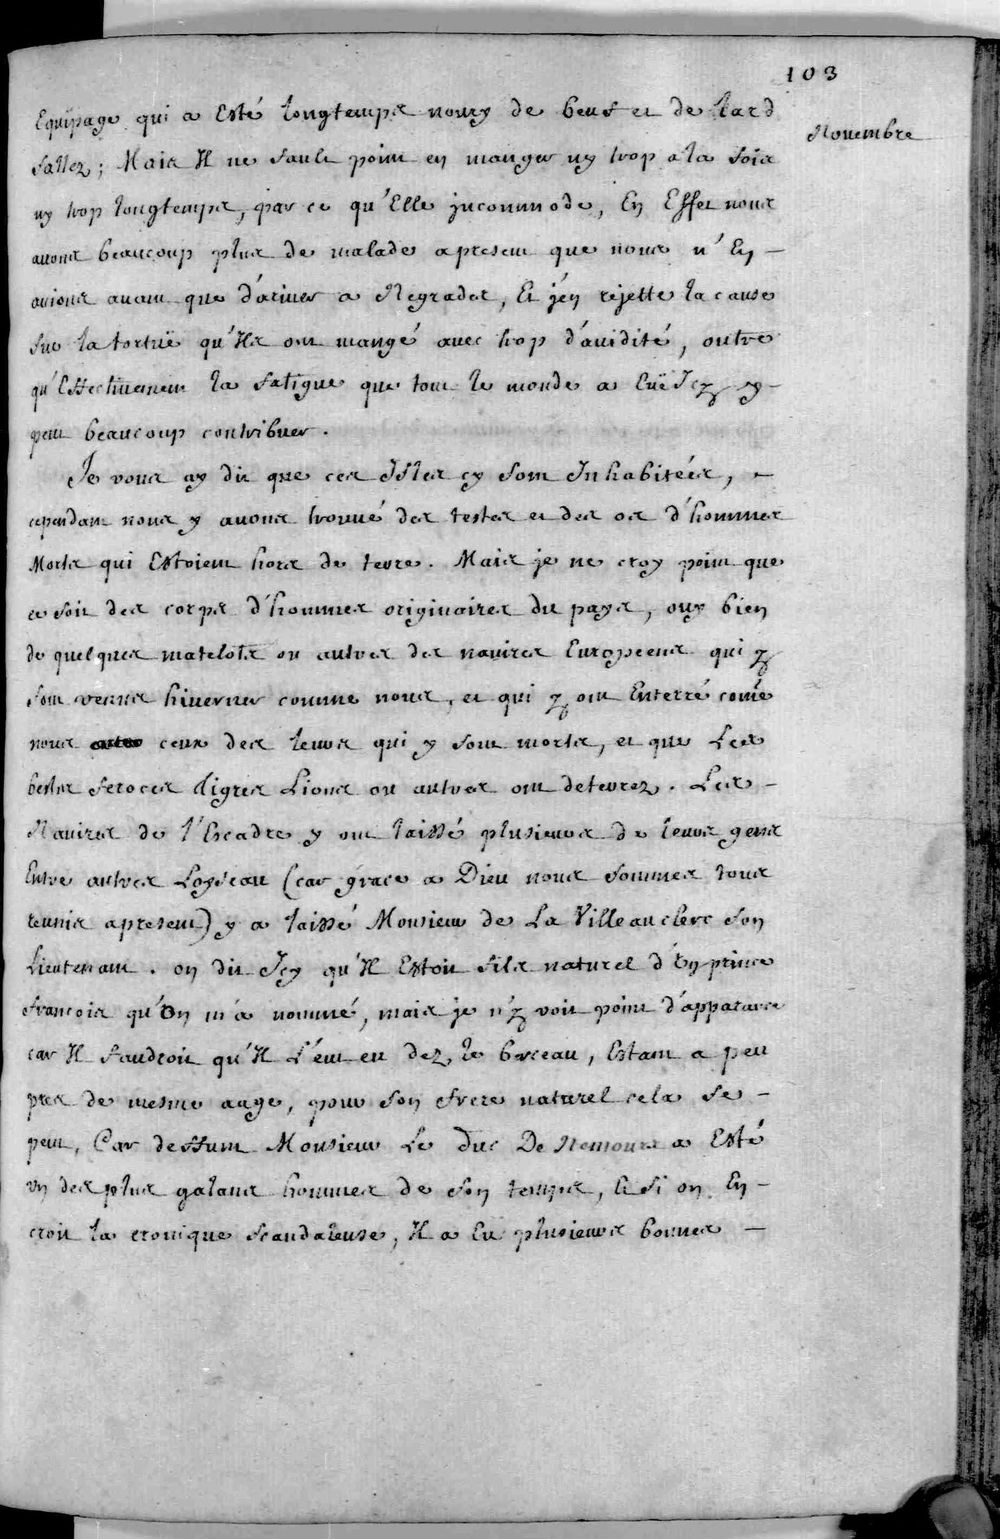 103
Novembre
Equipage qui a Esté longtemps noury de beuf et de lard
sallez; Mais Il ne fault point en manger ny trop a la fois
ny trop longtemps, par ce qu'Elle jncommode, En Effet nous
auons beaucoup plus de malade apresent que nous n'En -
auions auant que d'ariuer a Negrades, Et j'en rejette la cause
sur la tortüe qu'Ils ont mangé avec trop d'auidité, outre
qu'Effectiuement la fatigue que tout le monde a Euë Icy y -
peut beaucoup contribuer.
Je vous ay dit que ces Isles cy sont Inhabitées, -
cependant nous y auons trouué des testes et des os d'hommes
Morts qui Estoient hors de terre. Mais je ne croy point que
ce soit des corps d'hommes originaires du pays, ouy bien
de quelques matelots ou autres des nauires Europeens qui y
sont venus hiuerner comme nous, et qui y ont Enterré com̃e
nous ceux des leurs qui y sont morts, et que Les
bestes feroces tigres Lions ou autres ont deterrez. Les -
Nauires de l'Escadre y ont laissé plusieurs de leurs gens
Entre autres Loyseau (car grace a Dieu nous sommes tous
reunis apresent) y a laissé Monsieur de La Ville au clerc son
Lieutenant. on dit Icy qu'Il Estoit fils naturel d'Vn prince
francois qu'On m'a nommé, mais je n'y voit point d'apparance
car Il faudroit qu'Il L'eut eu dez le berceau, Estant a peu
pres de mesme aage, pour son frere naturel cela se -
peut, Car deffunt Monsieur Le Duc De Nemours a Esté
vn des plus galans hommes de son temps, Et si on En -
croit la cronique scandaleuse, Il a Eu plusieurs bonnes -